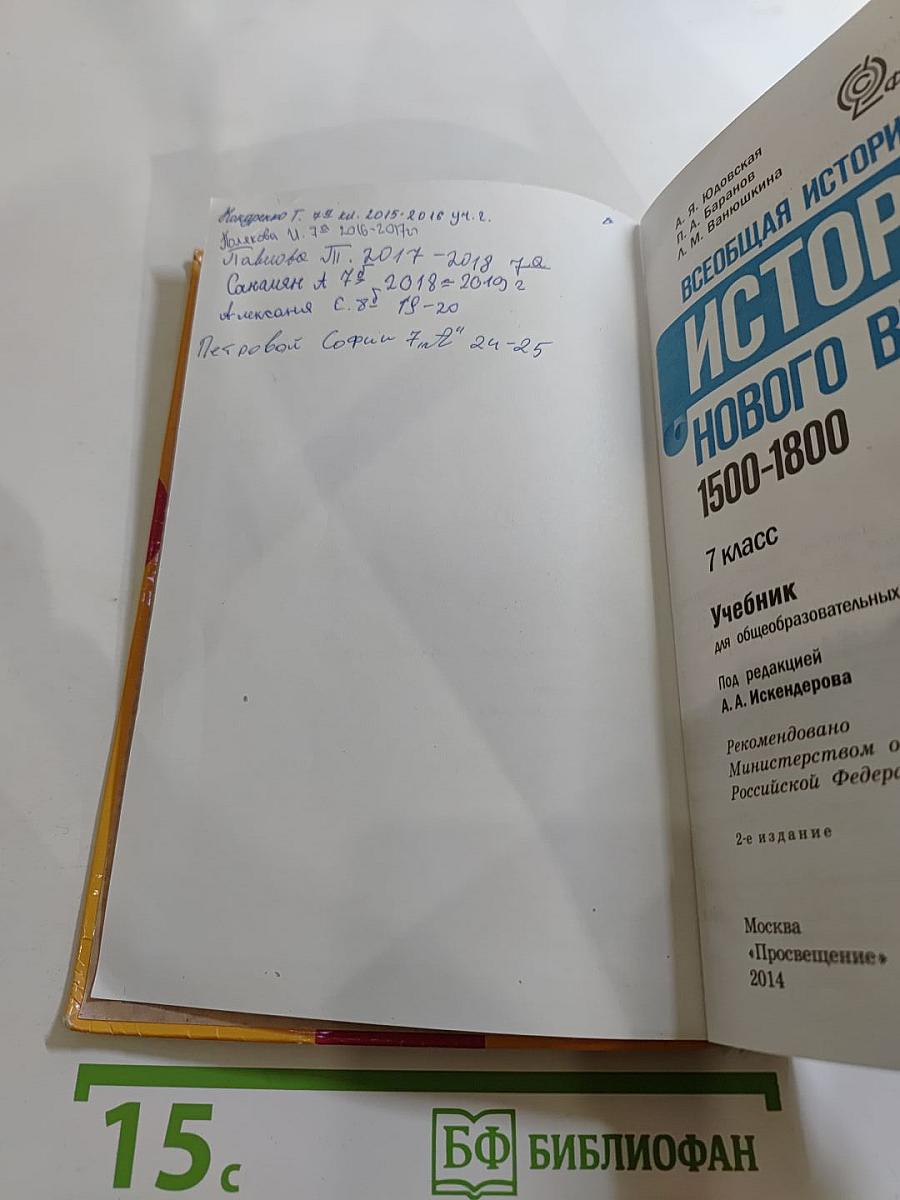 Кондренко Т. 7а кл. 2015-2016 уч. г.
Полякова И. 7а 2016-2017г
Павлова Т. 2017-2018 7а
А 7б 2018-2019 г
С. 8б 19-20
Петровой Софии 7 "А" 24-25
А. Я. Юдовская
П. А. Баранов
Л. М. Ванюшкина
ВСЕОБЩАЯ ИСТОРИ
ИСТОР
НОВОГО В
1500-1800
7 класс
Учебник
для общеобразовательных
Под редакцией
А. А. Искендерова
Рекомендовано
Министерством о
Российской Федера
2-е издание
Москва
«Просвещение»
2014
15 с
БФ БИБЛИОФАН